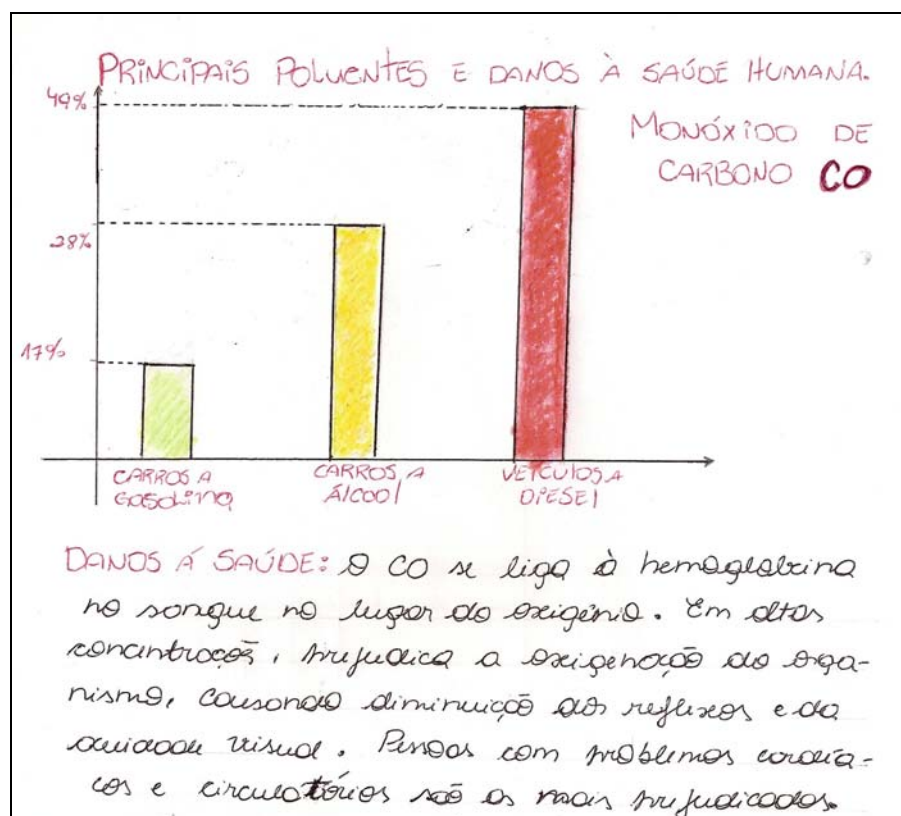 PRINCIPAIS POLUENTES E DANOS À SAÚDE HUMANA.
49%
MONÓXIDO DE
CARBONO CO
28%
17%
CARROS A
GASOLINA
CARROS A
ÁLCOOL
VEÍCULOS A
DIESEL
DANOS Á SAÚDE: O CO se liga à hemoglobina
no sangue no lugar do oxigênio. Em altas
concentraçoẽs, prejudica a oxigenação do orga-
nismo, causando diminuição dos reflexos e da
acuidade visual. Pessoas com problemas cardía-
cos e circulatórios são os mais prejudicados.